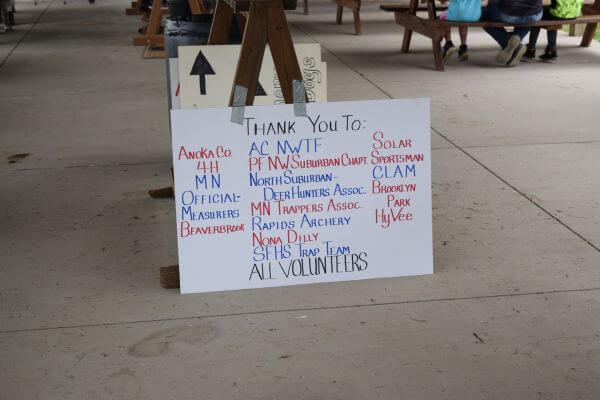 Thank You To:
Anoka Co.
4H
MN
Official-
Measurers
Beaverbrook
AC NWTF
PF NW Suburban Chapt.
North Suburban-
Deer Hunters Assoc.
MN Trappers Assoc.
Rapids Archery
Nona Dilly
SFHS Trap Team
All Volunteers
Solar
Sportsman
CLAM
Brooklyn
Park
HyVee
Dogs